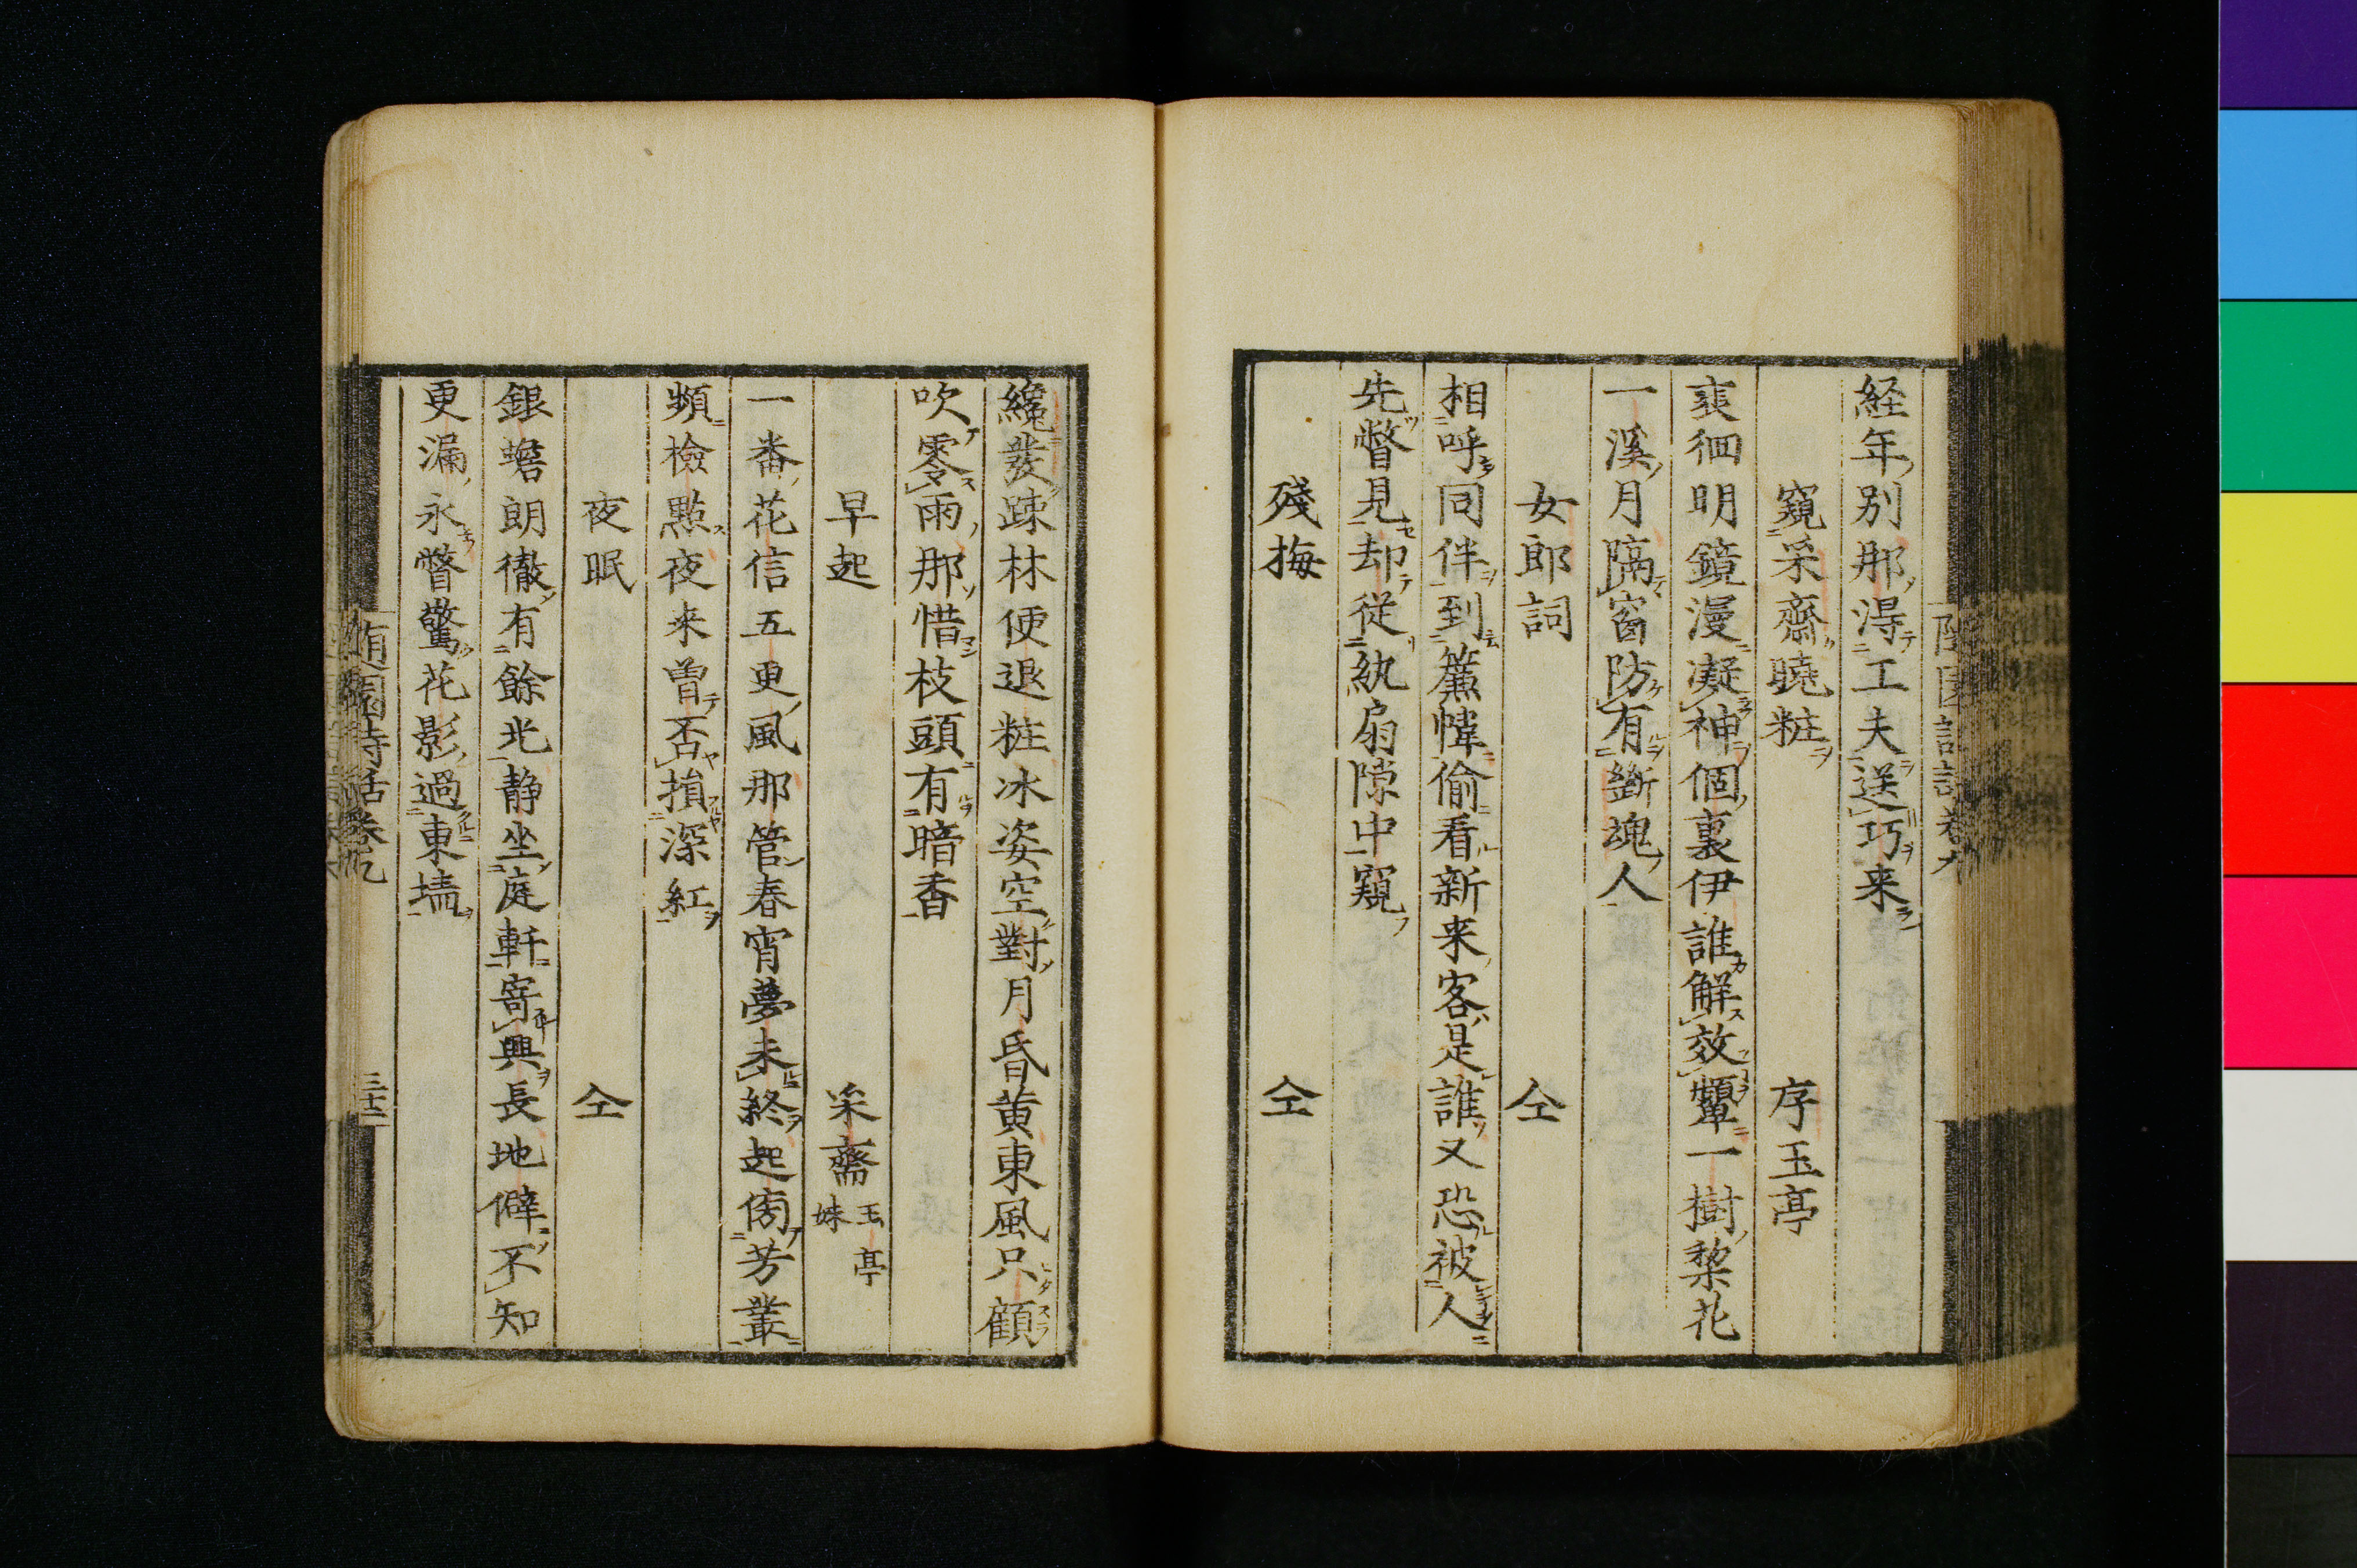 経年別那得工夫送巧来
窺采齋曉粧 序玉亭
裵徊明鏡漫凝神個裏伊誰解效顰一樹梨花
一溪月隔窗防有斷魂人
女郎詞 仝
相呼同伴到簾幃偷看新来客是誰又恐被人
先瞥見却従紈扇隙中窺
殘梅 仝
纔發踈林便退粧冰姿空對月昏黄東風只顧
吹零雨那惜枝頭有暗香
早起 采齋 玉亭妹
一番花信五更風那管春宵夢未終起傍芳叢
頻檢點夜来曽否損深紅
夜眠 仝
銀蟾朗徹有餘光静坐庭軒寄興長地僻不知
更漏永瞥驚花影過東墻
随園詩話巻九 三十二